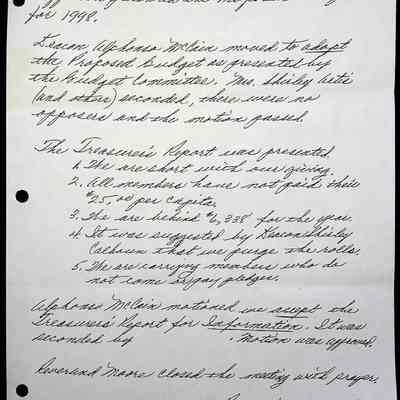 for 1998.
Deacon Alphonso McCain moved to adopt
the Proposed Budget as presented by
the Budget Committee. Mrs. Shirley Artis
(and others) seconded, there were no
opposers and the motion passed.
The Treasurer's Report was presented.
1. We are short with our giving.
2. All members have not paid their
$25.00 per capita.
3. We are behind $6,338 for the year.
4. It was suggested by Deacon Shirley
Calhoun that we purge the rolls.
5. We are carrying members who do
not come or pay pledges.
Alphonso McCain motioned we accept the
Treasurer's Report for Information. It was
seconded by . Motion was approved.
Reverend Moore closed the meeting with prayer.